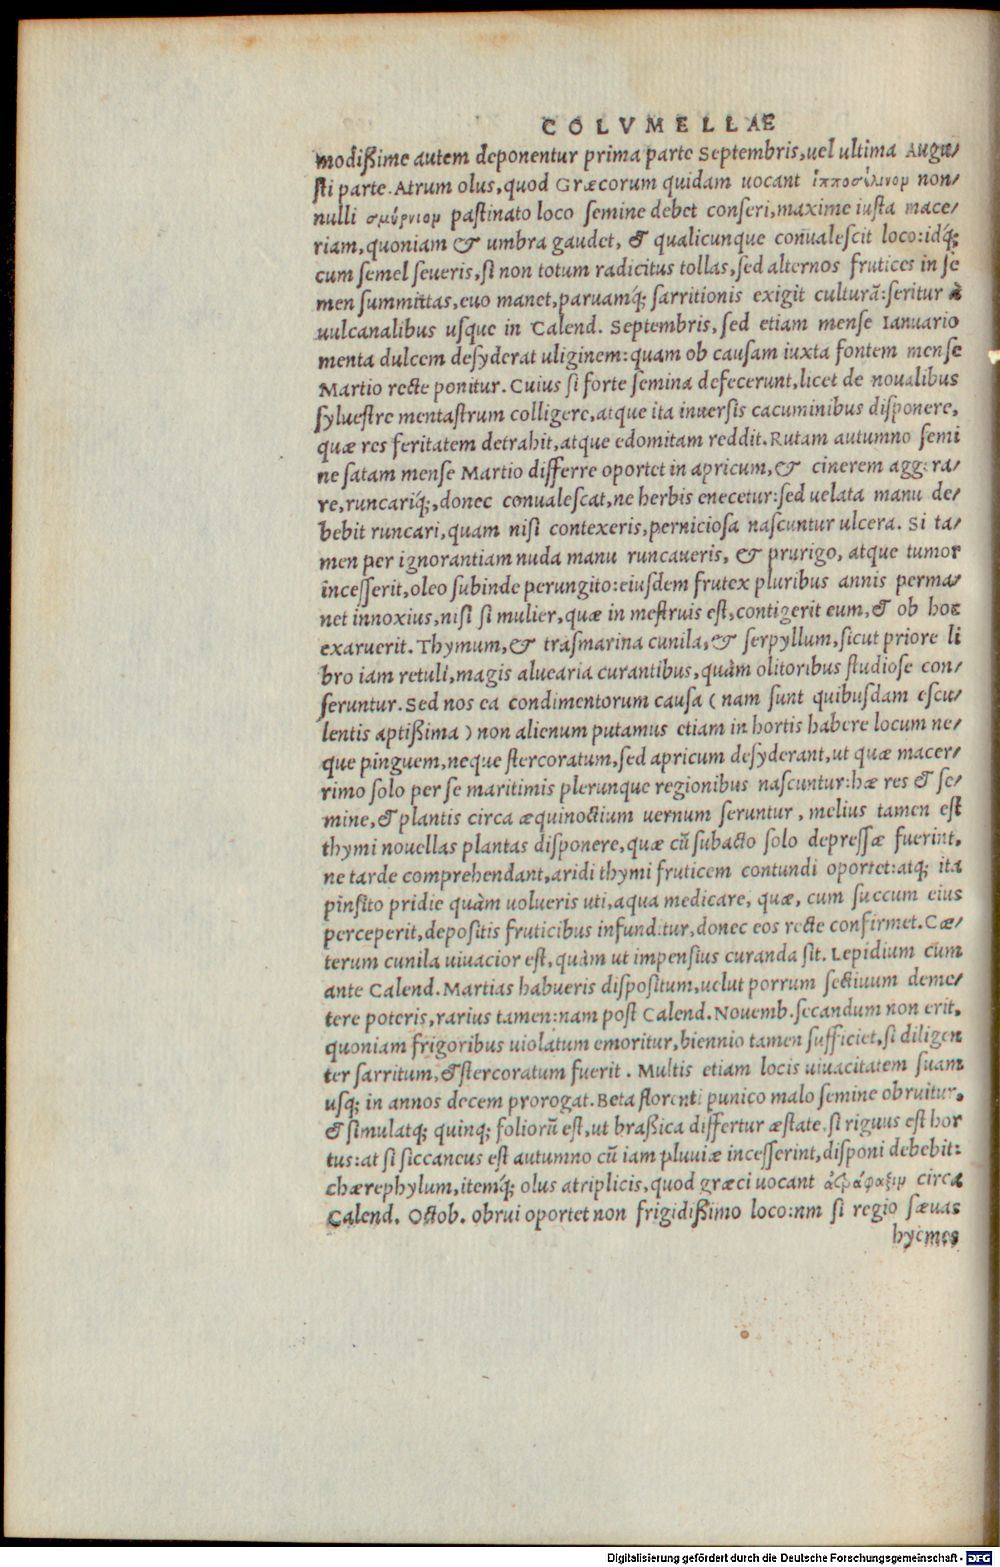 COLVMELLAE
modißime autem deponentur prima parte Septembris,uel ultima Augu/
sti parte.Atrum olus,quod Græcorum quidam uocant ἱπποσέλινον non/
nulli σμύρνιον pastinato loco semine debet conseri,maxime iusta mace/
riam,quoniam & umbra gaudet, & qualicunque conualescit loco:idq́;
cum semel seueris,si non totum radicitus tollas,sed alternos frutices in se
men summittas,euo manet,paruamq́; sarritionis exigit culturã:seritur à
uulcanalibus usque in Calend. Septembris,sed etiam mense Ianuario
menta dulcem desyderat uliginem:quam ob causam iuxta fontem mense
Martio recte ponitur.Cuius si forte semina defecerunt,licet de noualibus
syluestre mentastrum colligere,atque ita inuersis cacuminibus disponere,
quæ res feritatem detrahit,atque edomitam reddit.Rutam autumno semi
ne satam mense Martio differre oportet in apricum,& cinerem aggera/
re,runcariq́;,donec conualescat,ne herbis enecetur:sed uelata manu de/
bebit runcari,quam nisi contexeris,perniciosa nascuntur ulcera. Si ta/
men per ignorantiam nuda manu runcaueris, & prurigo, atque tumor
incesserit,oleo subinde perungito:eiusdem frutex pluribus annis perma/
net innoxius,nisi si mulier,quæ in mestruis est,contigerit eum,& ob hoc
exaruerit.Thymum,& trasmarina cunila,& serpyllum,sicut priore li
bro iam retuli,magis aluearia curantibus,quàm olitoribus studiose con/
seruntur.Sed nos ea condimentorum causa (nam sunt quibusdam escu/
lentis aptißima) non alienum putamus etiam in hortis habere locum ne/
que pinguem,neque stercoratum,sed apricum desyderant,ut quæ macer/
rimo solo per se maritimis plerunque regionibus nascuntur:hæ res & se/
mine,& plantis circa æquinoctium uernum seruntur, melius tamen est
thymi nouellas plantas disponere,quæ cũ subacto solo depressæ fuerint,
ne tarde comprehendant,aridi thymi fruticem contundi oportet:atq; ita
pinsito pridie quàm uolueris uti,aqua medicare, quæ, cum succum eius
perceperit,depositis fruticibus infunditur,donec eos recte confirmet.Cæ/
terum cunila uiuacior est,quàm ut impensius curanda sit.Lepidium cum
ante Calend.Martias habueris dispositum,uelut porrum sectiuum deme/
tere poteris,rarius tamen:nam post Calend.Nouemb.secandum non erit,
quoniam frigoribus uiolatum emoritur,biennio tamen sufficiet,si diligen
ter sarritum,& stercoratum fuerit . Multis etiam locis uiuacitatem suam
usq; in annos decem prorogat.Beta florenti punico malo semine obruitur,
& simulatq; quinq; foliorũ est,ut braßica differtur æstate.si riguus est hor
tus:at si siccaneus est autumno cũ iam pluuiæ incesserint,disponi debebit:
chærephylum,itemq́; olus atriplicis,quod græci uocant ἀτράφαξιν circa
Calend. Octob. obrui oportet non frigidißimo loco:nm si regio sæuas
hyemes
Digitalisierung gefördert durch die Deutsche Forschungsgemeinschaft - DFG